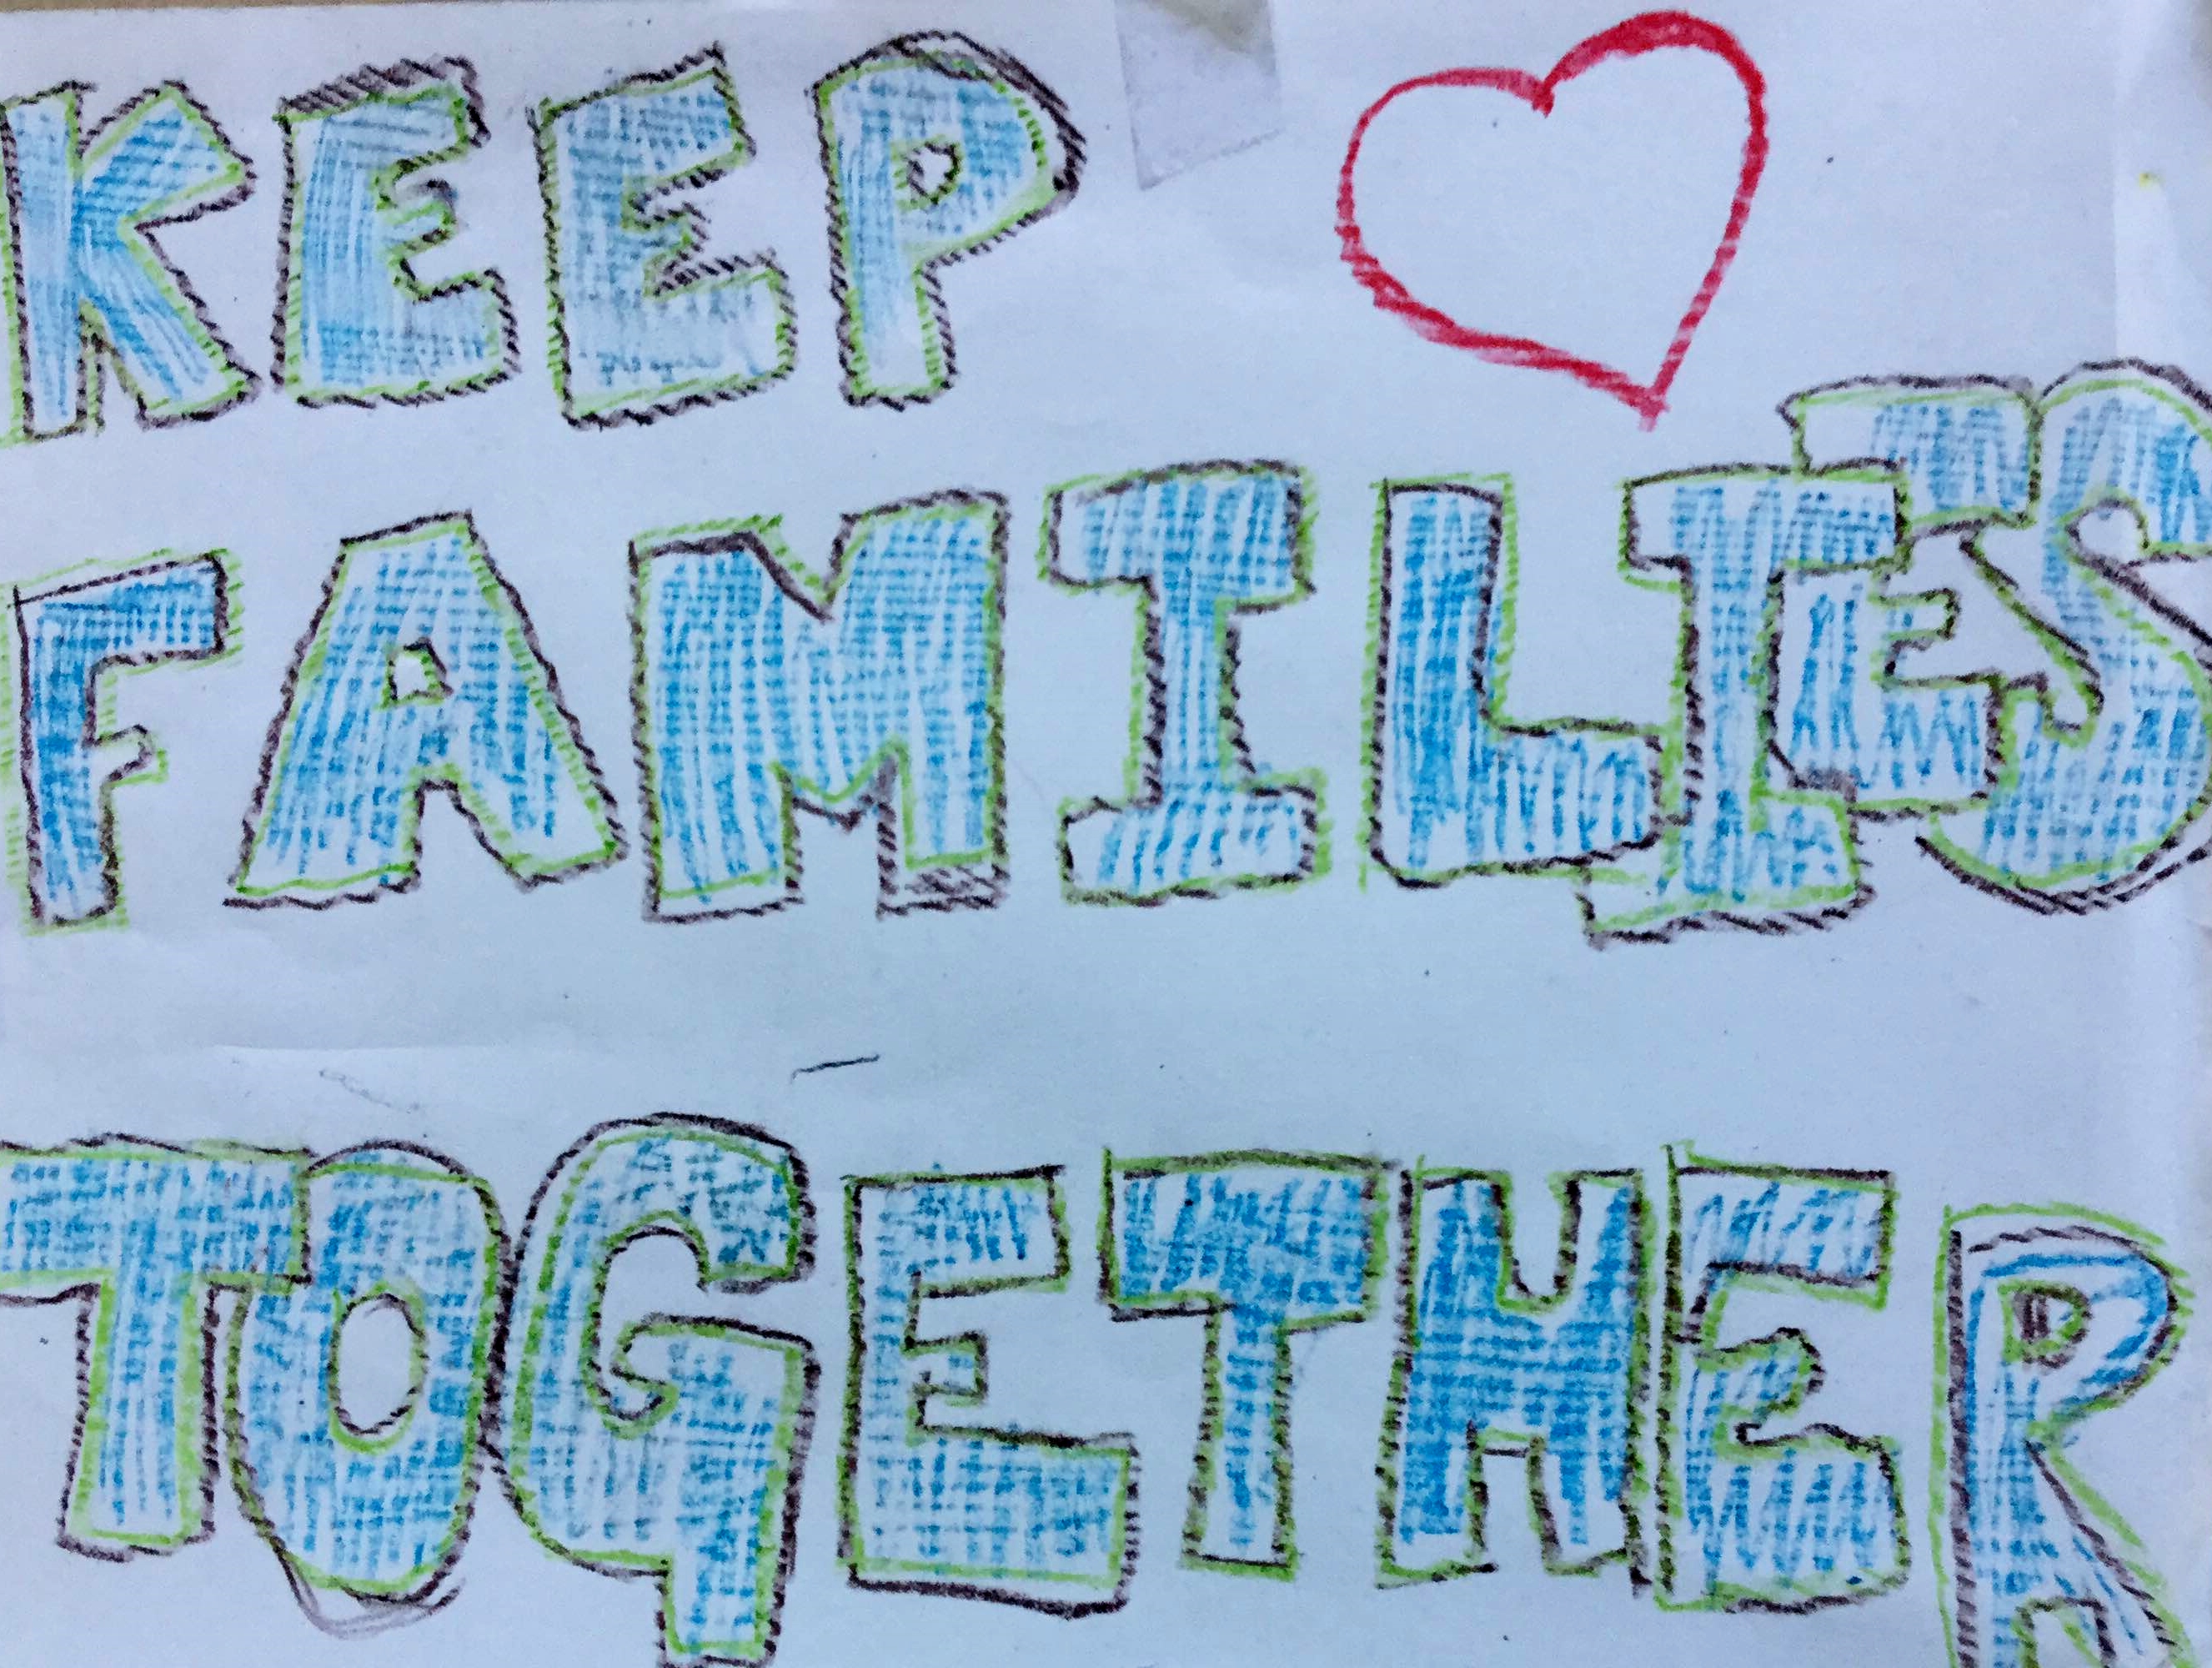 KEEP
FAMILIES
TOGETHER